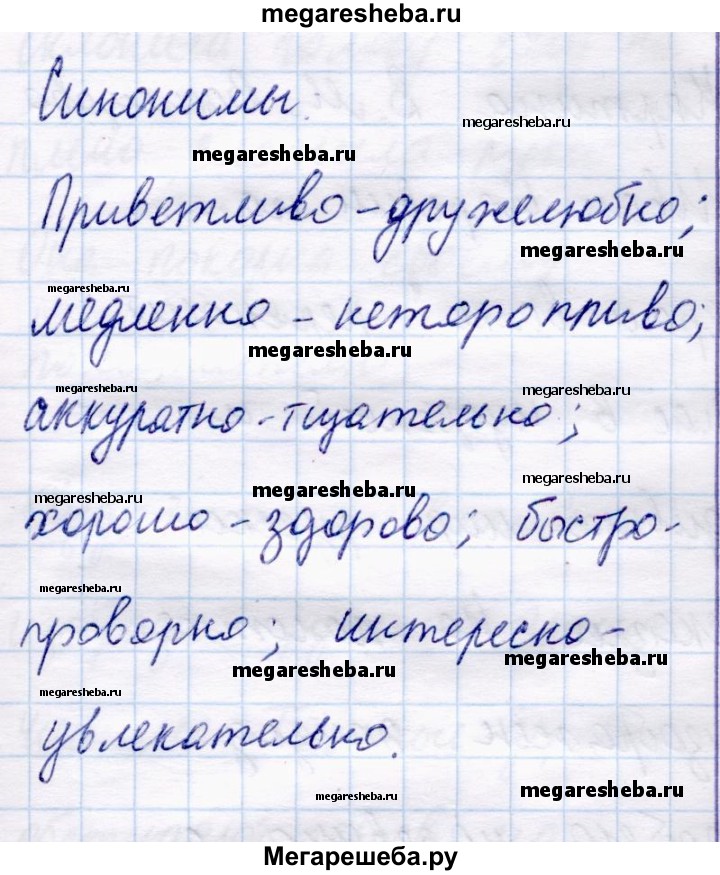 megaresheba.ru
Синонимы.
megaresheba.ru
megaresheba.ru
Приветливо - дружелюбно;
megaresheba.ru
megaresheba.ru
медленно - неторопливо;
megaresheba.ru
megaresheba.ru
megaresheba.ru
аккуратно - тщательно;
megaresheba.ru
megaresheba.ru
megaresheba.ru
хорошо - здорово; быстро -
megaresheba.ru
проворно; интересно -
megaresheba.ru
megaresheba.ru
megaresheba.ru
увлекательно.
megaresheba.ru
megaresheba.ru
Мегарешеба.ру